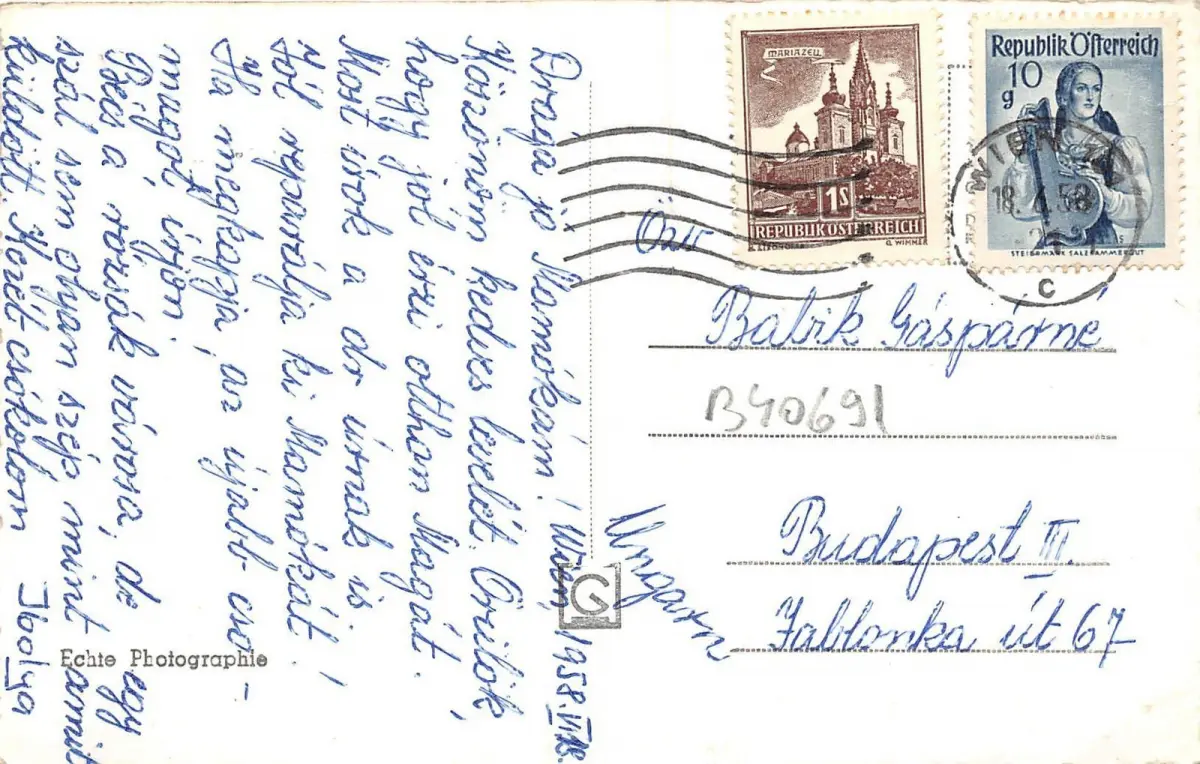 Drága jó Mamókám! Wien, 1958. VI. 18.
Köszönöm kedves levelét. Örülök,
hogy jól érzi otthon Magát.
Most írok a dr úrnak is,
jól reparálja ki Mamókát!
Ha megkapja az újabb cso-
magot írjon!
Bécs a rózsák városa, de egy
szál sem olyan szép, mint amit
küldött. Kezeit csókolom Ibolya
Echte Photographie
G
MARIAZELL
1S
REPUBLIK ÖSTERREICH
G. WIMMER
Republik Österreich
10
g
STEIERMARK SALZKAMMERGUT
WIEN
18. 58
C
Özv
Babik Gáspárné
B40691
Budapest III.
Jablonka út 67
Ungarn